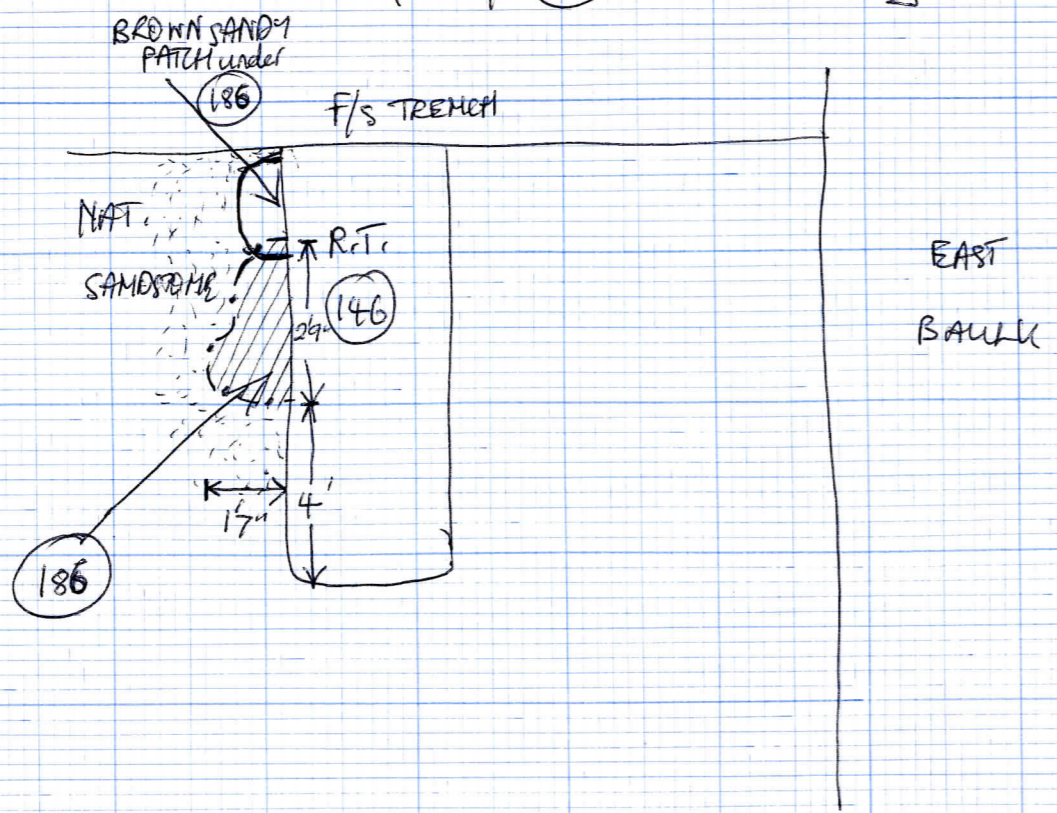 BROWN SANDY
PATCH under
186
F/S TRENCH
NAT.
SANDSTONE
R.T.
146
29"
EAST
BAULK
17"
4'
186